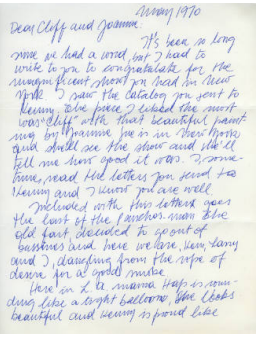 May 1970
Dear Cliff and Joanne.
It's been so long
since we had a word, but I had to
write to you to congratulate for the
magnificent show you had in New
York. I saw the catalog you sent to
Kenny. The piece I liked the most
was "Cliff" with that beautiful paint
ing by Joanne. is in New York
and shall see the show and he'll
tell me how good it was. I some
time, read the letters you send to
Kenny and I know you are well.
Included with this letter goes
the last of the The
old fart, decided to go out of
business and here we are, Ken, Larry
and I, dangling from the rope of
desire for a good smoke.
Here in L.A. mama Hap is roun
ding like a light balloone, She looks
beautiful and Kenny is proud like